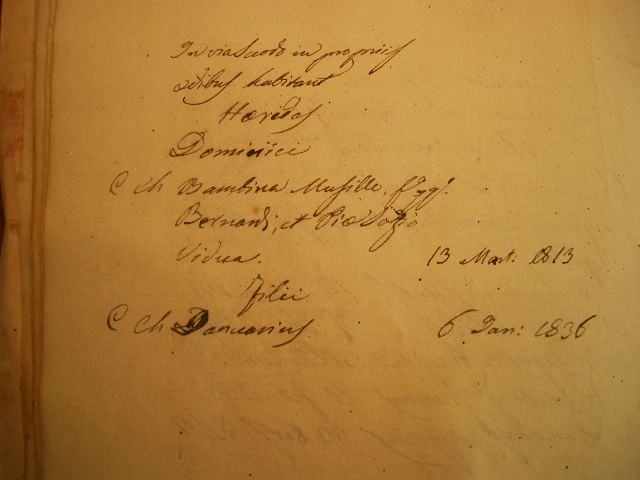 In via Suodo in propriis
ædibus habitant
Hæredes
Dominici
C Ch Bambina Musille, 
Bernardi, et Piæ Sozio
Vidua. 13 Mart: 1813
Filii
C Ch Januarius 6 Jan: 1836